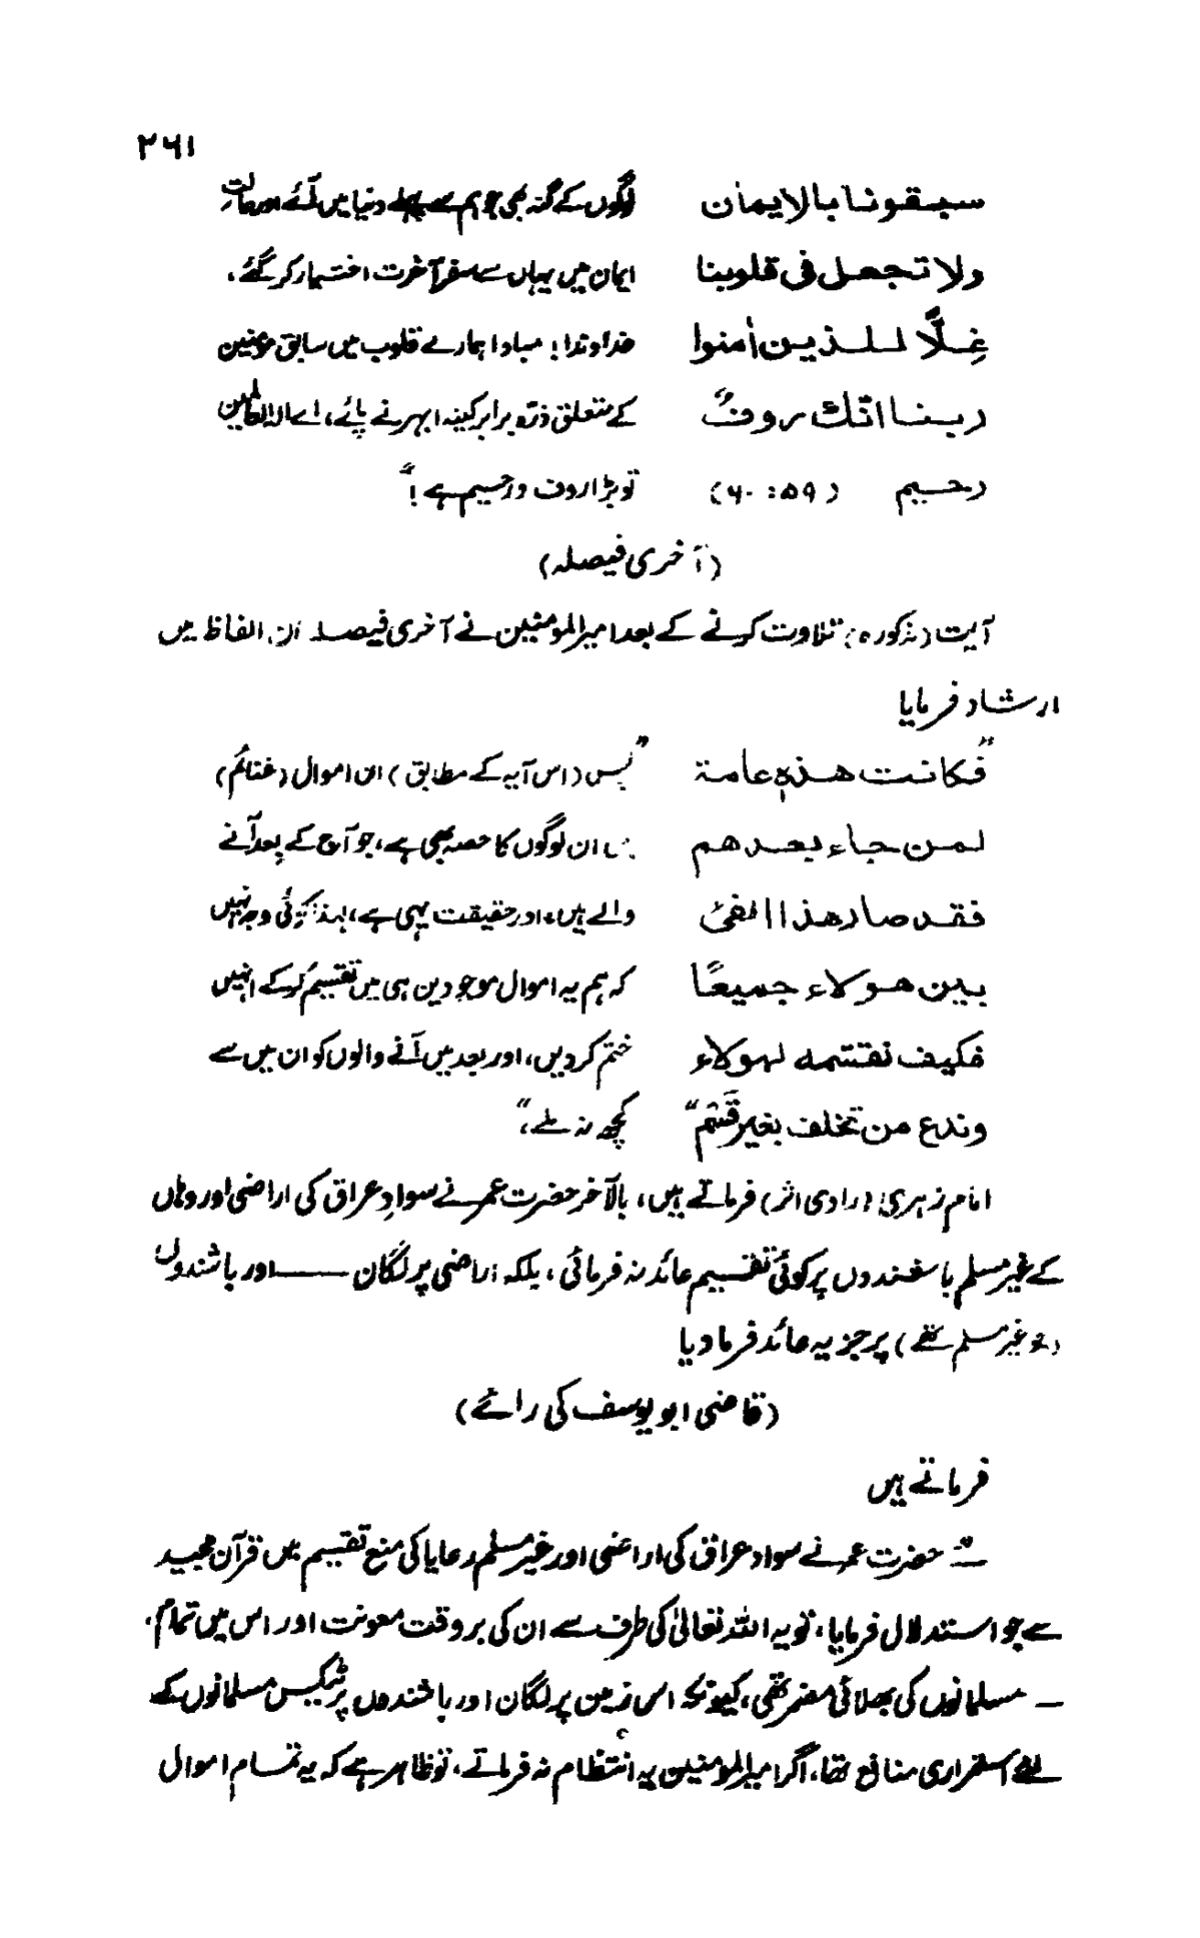 ۲۶۱
سبقونا بالایمان لوگوں کے گنہ بھی جو ہم سے پہلے دنیا میں آئے اور حالت
ولا تجعل فی قلوبنا ایمان میں یہاں سے سفر آخرت اختیار کر گئے،
غِلًّا للذین اٰمنوا خداوندا! مبادا ہمارے قلوب میں سابق مومنین
ربنا انّک روفٌ کے متعلق ذرّہ برابر کینہ ابھرنے پائے، اے الٰہ العٰلمین
رحیم (۵۹: ۶۰) تو بڑا روف و رحیم ہے!"
(آخری فیصلہ)
آیت (مذکورہ) تلاوت کرنے کے بعد امیر المومنین نے آخری فیصلہ ان الفاظ میں
ارشاد فرمایا
"فکانت ھذہٖ عامۃ "پس (اس آیہ کے مطابق) ان اموال (غنائم)
لمن جاء بعدھم میں ان لوگوں کا حصہ بھی ہے، جو آج کے بعد آنے
فقد صار ھذا الفیٔ والے ہیں، اور حقیقت یہی ہے، لہذا کوئی وجہ نہیں
بین ھولاء جمیعًا کہ ہم یہ اموال موجودین ہی میں تقسیم کر کے انہیں
فکیف نقتسمہ لھولاء ختم کر دیں، اور بعد میں آنے والوں کو ان میں سے
وندع من تخلف بغیر قَسْم" کچھ نہ ملے،"
امام زہری (راوی اثر) فرماتے ہیں، بالآخر حضرت عمر نے سوادِ عراق کی اراضی اور وہاں
کے غیر مسلم باشندوں پر کوئی تقسیم عائد نہ فرمائی، بلکہ اراضی پر لگان — اور باشندوں
(جو غیر مسلم تھے) پر جزیہ عائد فرما دیا
(قاضی ابو یوسف کی رائے)
فرماتے ہیں
حضرت عمر نے سواد عراق کی اراضی اور غیر مسلم رعایا کی منع تقسیم میں قرآن مجید
سے جو استدلال فرمایا، تو یہ اللہ تعالیٰ کی طرف سے ان کی بر وقت معونت اور اس میں تمام
مسلمانوں کی بھلائی مضمر تھی، کیونکہ اس زمین پر لگان اور باشندوں پر ٹیکس مسلمانوں کے
لئے استمراری منافع تھا، اگر امیر المومنین یہ انتظام نہ فرماتے، تو ظاہر ہے کہ یہ تمام اموال